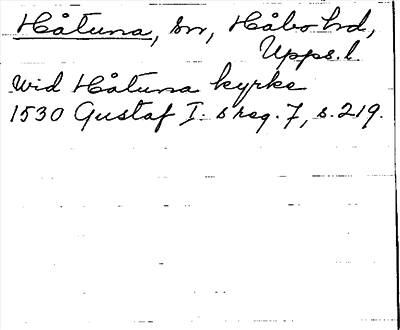 Håtuna, sn, Håbo hd,
Upps. l.
wid Håtuna kyrke
1530 Gustaf I:s reg. 7, s. 219.